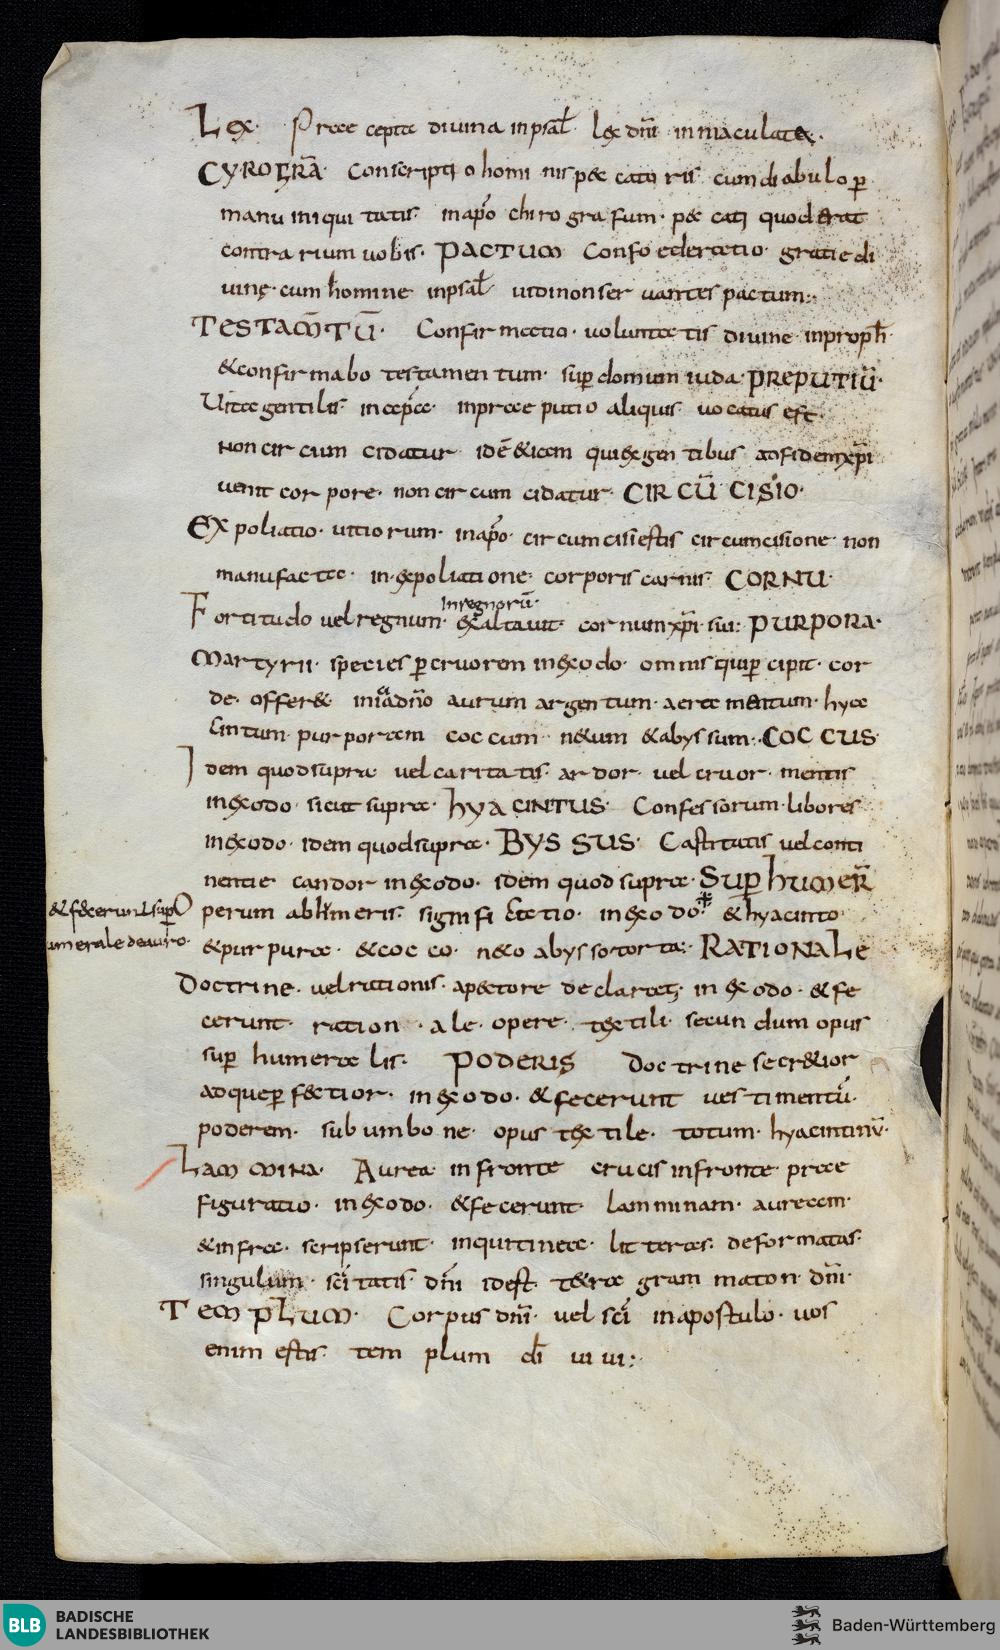 Lex. Praecepta divina inpsal lex dni inmaculata.
CYROGRA conscriptio hominis peccatoris cum diabulo p
manu iniquitatis. inapo chirografum. peccati quod erat
contrarium uobis. PACTUM Confoederatio gratie di
uinę. cum homine inpsal ut dinonseruantes pactum.
TESTAMTU. Confirmatio. uoluntatis diuine inproph
&confirmabo testamentum. sup domum iuda. PREPUTIU.
Uita gentilis. inapca. inpraeputio aliquis uocatus est.
non circumcidatur idē &iam quiexgentibus adfidemxpi
uenit corpore. non circumcidatur. CIRCU CISIO.
Expoliatio. uitiorum. inapo. circumcisiestis circumcisione non
manufacta. in.expoliatione. corporis carnis. CORNU.
inregnorū.
Fortitudo uel regnum. exaltauit cornumxpi sui: PURPORA.
Martyrii. species p cruorem inexodo. omnis quip cipit. cor
de. offer& adno aurum argentum. aeramentum. hyac
cintum. purporam coccum n&um &abyssum. COCCUS.
Idem quodsupra uel caritatis. ardor. uel cruor. mentis
inexodo. sicut supra. hyACINTUS. Confessorum. libores
inexodo. idem quodsupra. BYSSUS. Castitatis uelconti
nentie candor inexodo. idem quod supra. SuphumeR
&fecerunt sup
umerale deauro.
perum abhumeris. significatio. inexodo. &hyacinto
&purpura. &cocco. n&o abyssotorta. RATIONALE
Doctrine. uelrationis. apectore declarat. in exodo. &fe
cerunt. rationale. opere textili. secundum opus
sup humeralis. PODERIS Doctrine secr&ior
adquep fectior. inexodo. &fecerunt uestimentū.
poderem. sub umbone. opus textile. totum. hyacintinū.
LAMMINA. Aurea infronte crucis infronte prae
figuratio. inexodo. &fecerunt lamminam. auream.
&infra. scripserunt. litteras. deformatas.
singulum. scitatis. dni idest. t&ra grammaton. dni.
TEMPLUM. Corpus dni. uel sci inapostulo. uos
enim estis. templum di uiui:.
BLB BADISCHE
LANDESBIBLIOTHEK
Baden-Württemberg